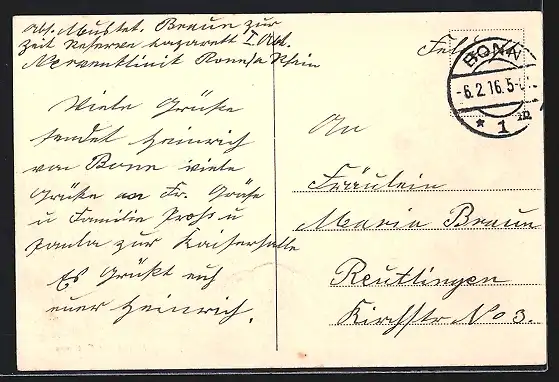 Abs. Musket. Braun zur
Zeit Reserve Lazarett I. Abt.
Nervenklinik Bonn a Rhein
Viele Grüße
sendet Heinrich
von Bonn viele
Grüße an Fr. Gröse
u Familie Pross u
Paula zur Kaiserhalle
Es Grüßt euch
euer Heinrich.
BONN
-6.2.16.5-
* 1
An
Fräulein
Maria Braun
Reutlingen
Kirchstr No 3.